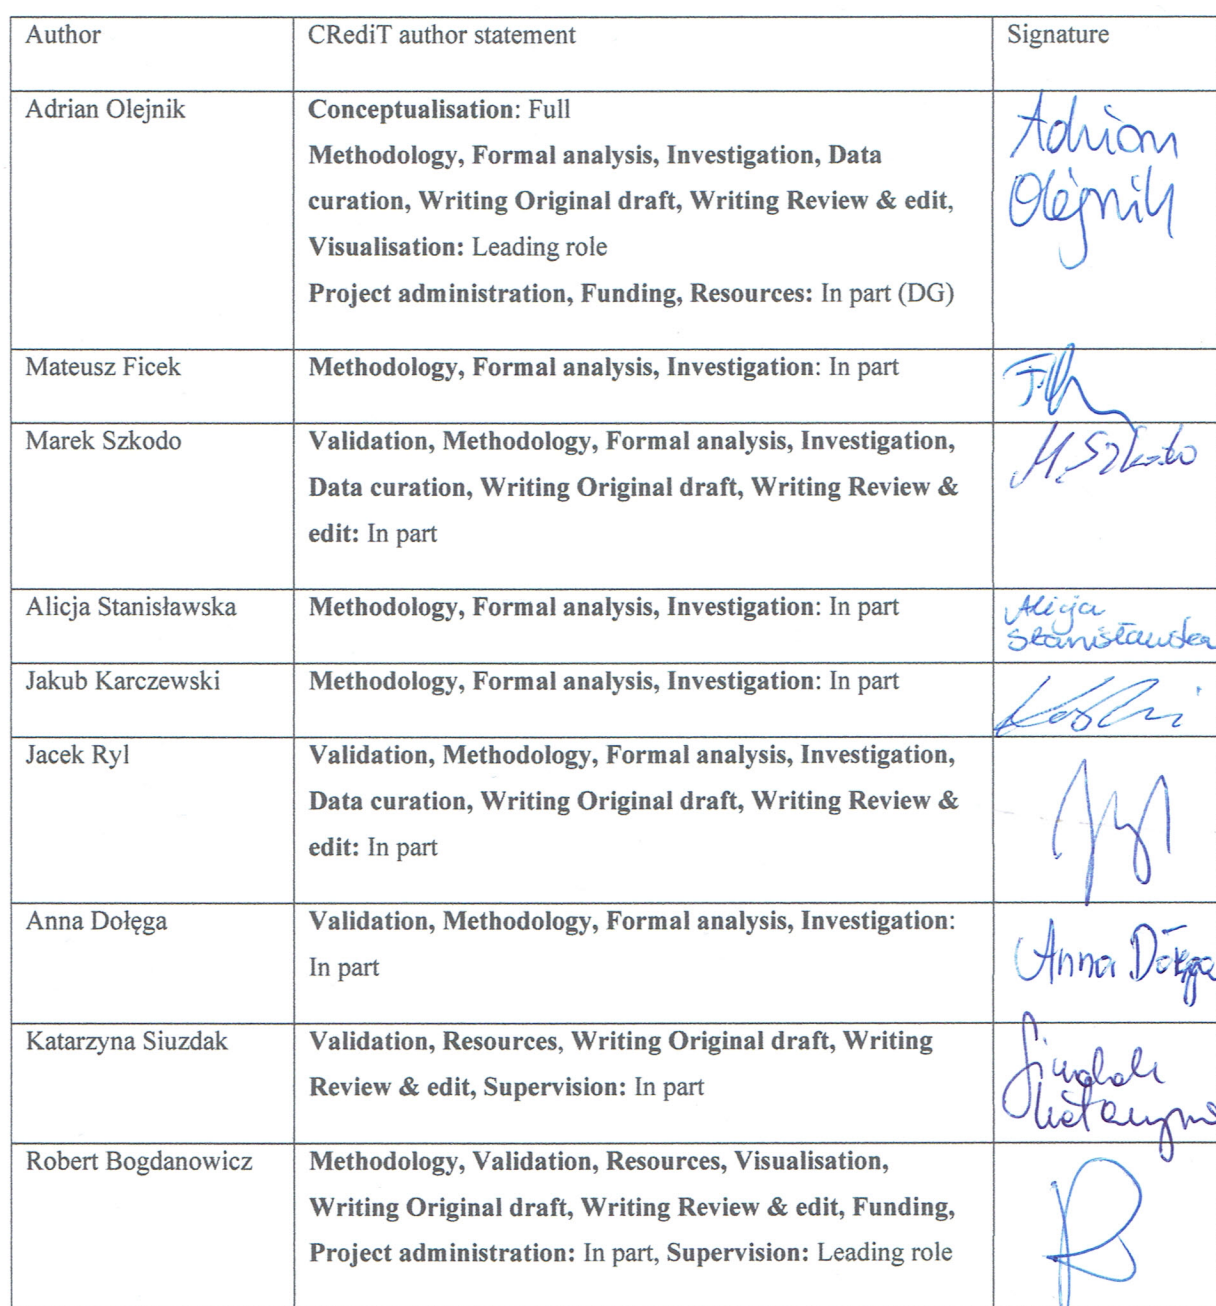 Author CRediT author statement Signature
Adrian Olejnik Conceptualisation: Full
Methodology, Formal analysis, Investigation, Data
curation, Writing Original draft, Writing Review & edit,
Visualisation: Leading role
Project administration, Funding, Resources: In part (DG)
Adrian
Olejnik
Mateusz Ficek Methodology, Formal analysis, Investigation: In part
Marek Szkodo Validation, Methodology, Formal analysis, Investigation,
Data curation, Writing Original draft, Writing Review &
edit: In part
M. Szkodo
Alicja Stanisławska Methodology, Formal analysis, Investigation: In part
Alicja
Stanisławska
Jakub Karczewski Methodology, Formal analysis, Investigation: In part
Jacek Ryl Validation, Methodology, Formal analysis, Investigation,
Data curation, Writing Original draft, Writing Review &
edit: In part
Anna Dołęga Validation, Methodology, Formal analysis, Investigation:
In part
Anna Dołęga
Katarzyna Siuzdak Validation, Resources, Writing Original draft, Writing
Review & edit, Supervision: In part
Siuzdak
Katarzyna
Robert Bogdanowicz Methodology, Validation, Resources, Visualisation,
Writing Original draft, Writing Review & edit, Funding,
Project administration: In part, Supervision: Leading role